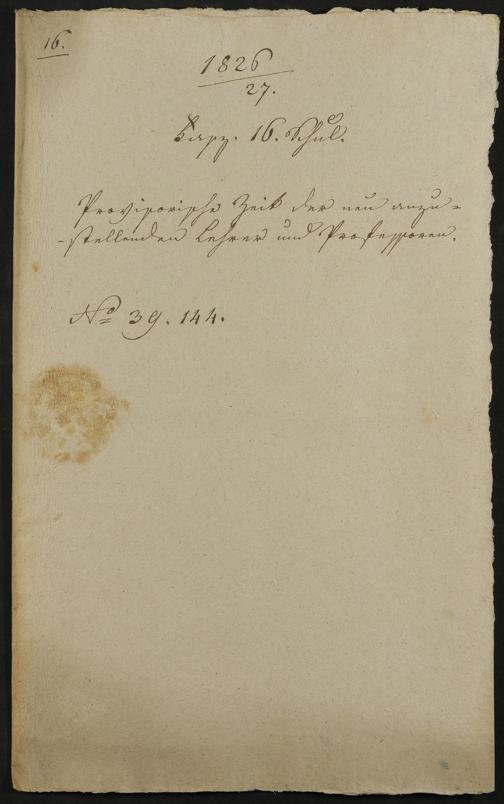 16.
1826
27.
16. Schul.
Provisorische Zeit der neu anzu-
-stellenden Lehrer und Professoren.
No 39. 144.